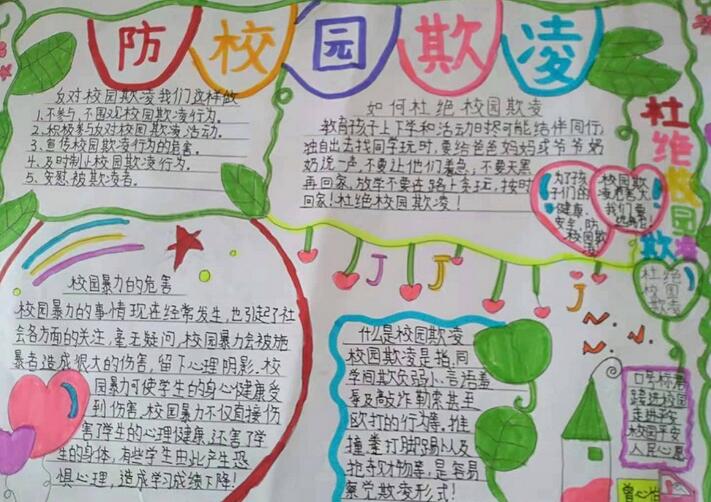 防校园欺凌
反对校园欺凌我们这样做
1.不参与,不围观校园欺凌行为。
2.积极参与反对校园欺凌活动。
3.宣传校园欺凌行为的危害。
4.及时制止校园欺凌行为。
5.安慰被欺凌者。
如何杜绝校园欺凌
教育孩子上下学和活动时尽可能结伴同行,
独自出去找同学玩时,要给爸爸妈妈或爷爷奶
奶说一声,不要让他们着急,不要天黑
再回家,放学不要在路上贪玩,按时
回家!杜绝校园欺凌!
为了孩
子们的
健康、
安全,防
校园欺
校园欺
凌危害大
我们要
杜绝校园欺凌
杜绝
校园
欺凌
校园暴力的危害
校园暴力的事情现在经常发生,也引起了社
会各方面的关注,毫无疑问,校园暴力会被施
暴者造成很大的伤害,留下心理阴影。校
园暴力可使学生的身心健康受
到伤害。校园暴力不仅直接伤
害了学生的心理健康,还害了学
生的身体,有些学生由此产生恐
惧心理,造成学习成绩下降!
什么是校园欺凌
校园欺凌是指同
学间欺负弱小、言语羞
辱及敲诈勒索甚至
殴打的行为等。推
撞、拳打脚踢以及
抢夺财物等,是容易
察觉欺凌形式!
J
J
J
口号标准
踏进校园
走进学校
校园平安
人民心愿